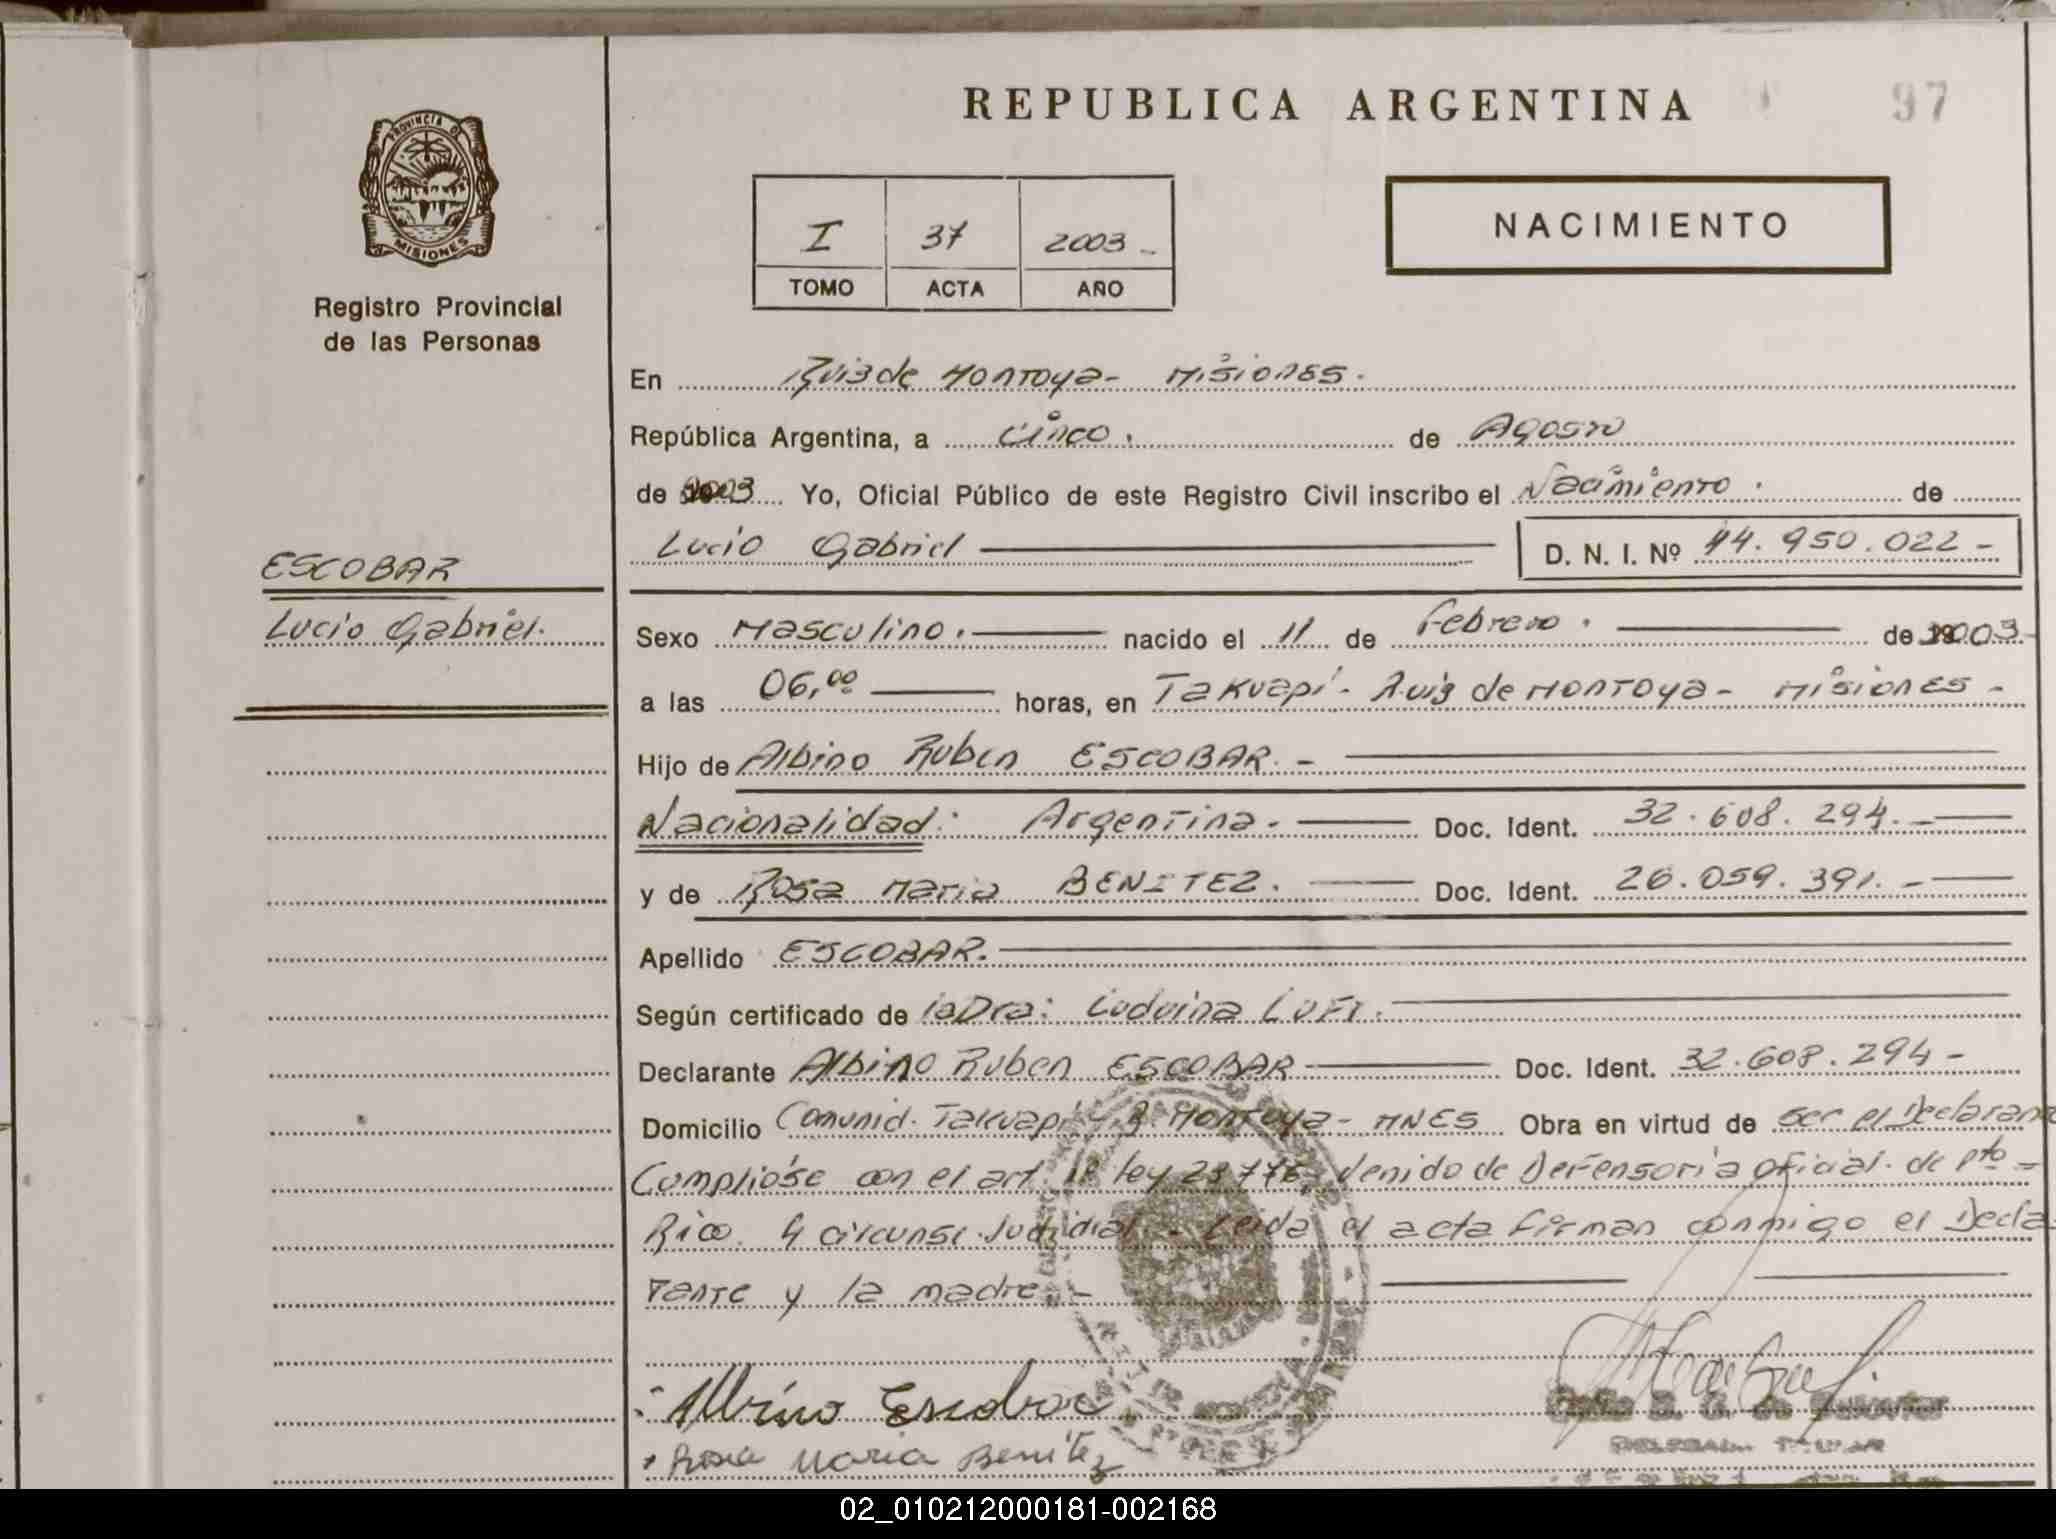 REPUBLICA ARGENTINA
97
PROVINCIA DE
MISIONES
Registro Provincial
de las Personas
I 37 2003 -
TOMO ACTA AÑO
NACIMIENTO
En Ruiz de Montoya - Misiones.
República Argentina, a cinco. de Agosto
de 2003 Yo, Oficial Público de este Registro Civil inscribo el Nacimiento. de
Lucio Gabriel D. N. I. Nº 44.950.022 -
ESCOBAR
Lucio Gabriel.
Sexo Masculino. nacido el 11 de Febrero. de 2003 -
a las 06,00 horas, en Takuapí - Ruiz de Montoya - Misiones -
Hijo de Albino Ruben ESCOBAR. -
Nacionalidad: Argentina. Doc. Ident. 32.608.294. -
y de Rosa Maria BENITEZ. Doc. Ident. 26.059.391. -
Apellido ESCOBAR.
Según certificado de la Dra: Luduina
Declarante Albino Ruben ESCOBAR Doc. Ident. 32.608.294 -
Domicilio Comunid. Takuapí - R. Montoya - MNES Obra en virtud de ser el Declarante
Cumplióse con el art. 1º ley 23776, venido de Defensoría oficial de Pto -
Rico. 4 circunsc. Judicial. - Leída el acta firman conmigo el Decla-
rante y la madre. -
Albino Escobar
Rosa Maria Benitez
02_010212000181-002168